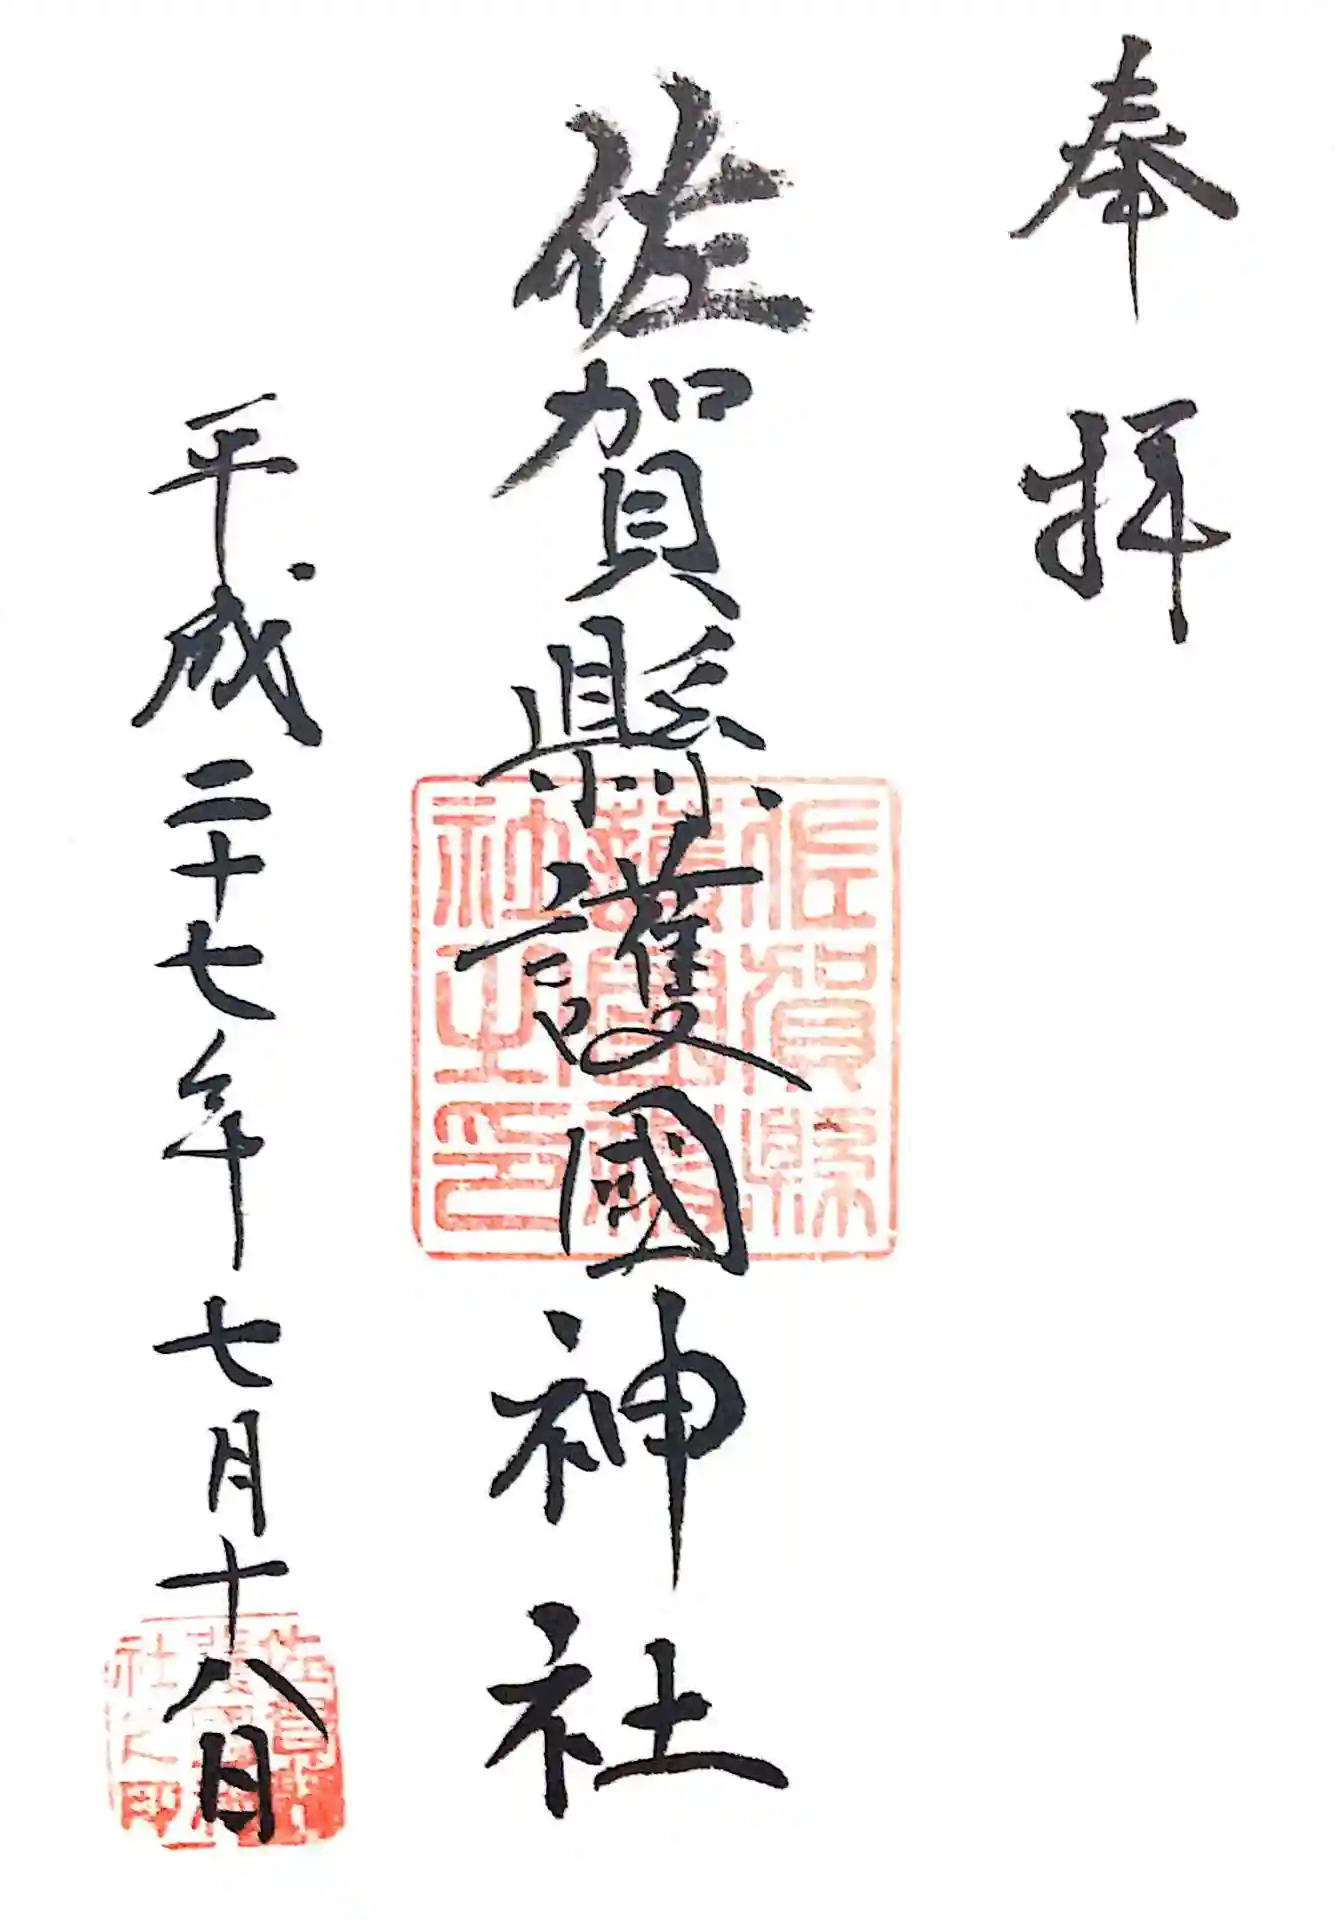 奉拝
佐賀縣護國神社
平成二十七年七月十八日
佐賀縣
護國神
社之印
佐賀縣
護國神
社之印